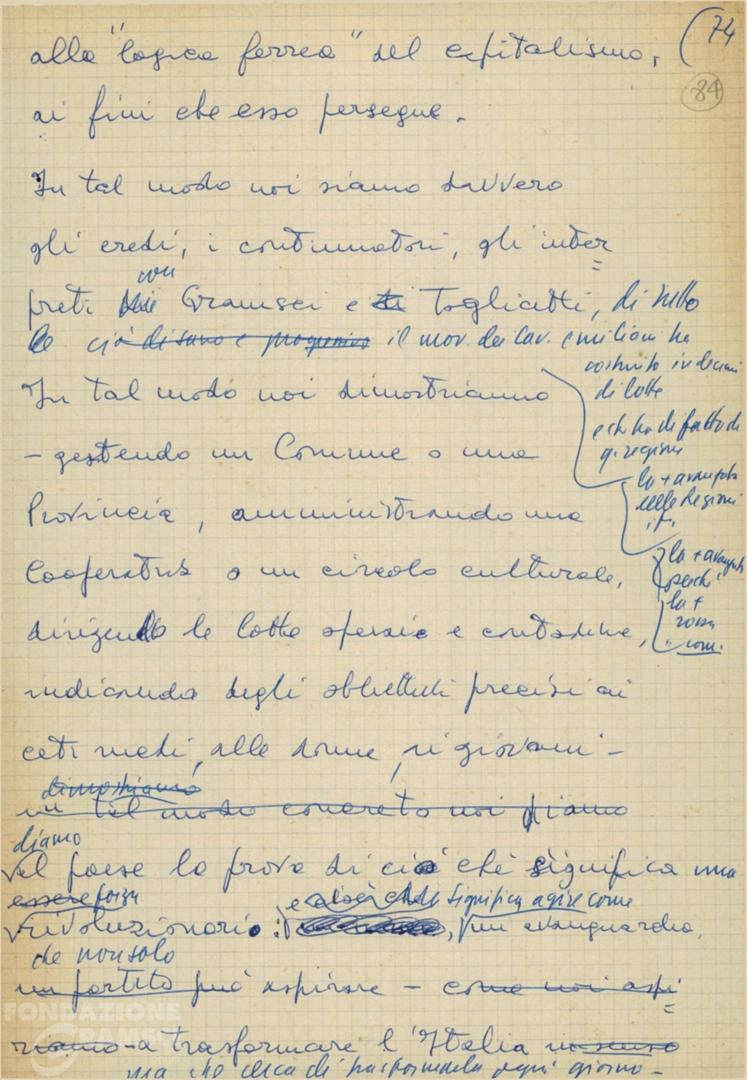 74
84
alla "logica ferrea" del capitalismo,
ai fini che esso persegue.
In tal modo noi siamo davvero
gli eredi, i continuatori, gli inter=
con
preti di Gramsci e di Togliatti, di tutto
ciò di sano e il mov. dei lav. emiliani ha
costruito in decenni
di lotte
e che ha di fatto di
q. regione
la + avanzata
delle Regioni
it.
la + avanzata
perché
la +
rossa
In tal modo noi dimostriamo
- gestendo un Comune o una
Provincia, amministrando una
Cooperativa o un circolo culturale,
dirigendo le lotte operaie e contadine,
indicando degli obbiettivi precisi ai
ceti medi, alle donne, ai giovani -
dimostriamo
in tal modo concreto noi diamo
diamo
al paese la prova di ciò che significa una
essere forza
rivoluzionario: e cioè che significa agire come
un avanguardia,
che non solo
un partito può aspirare - come noi aspi=
riamo - a trasformare l'Italia in senso
ma che cerca di trasformarla ogni giorno -
FONDAZIONE
GRAMSCI